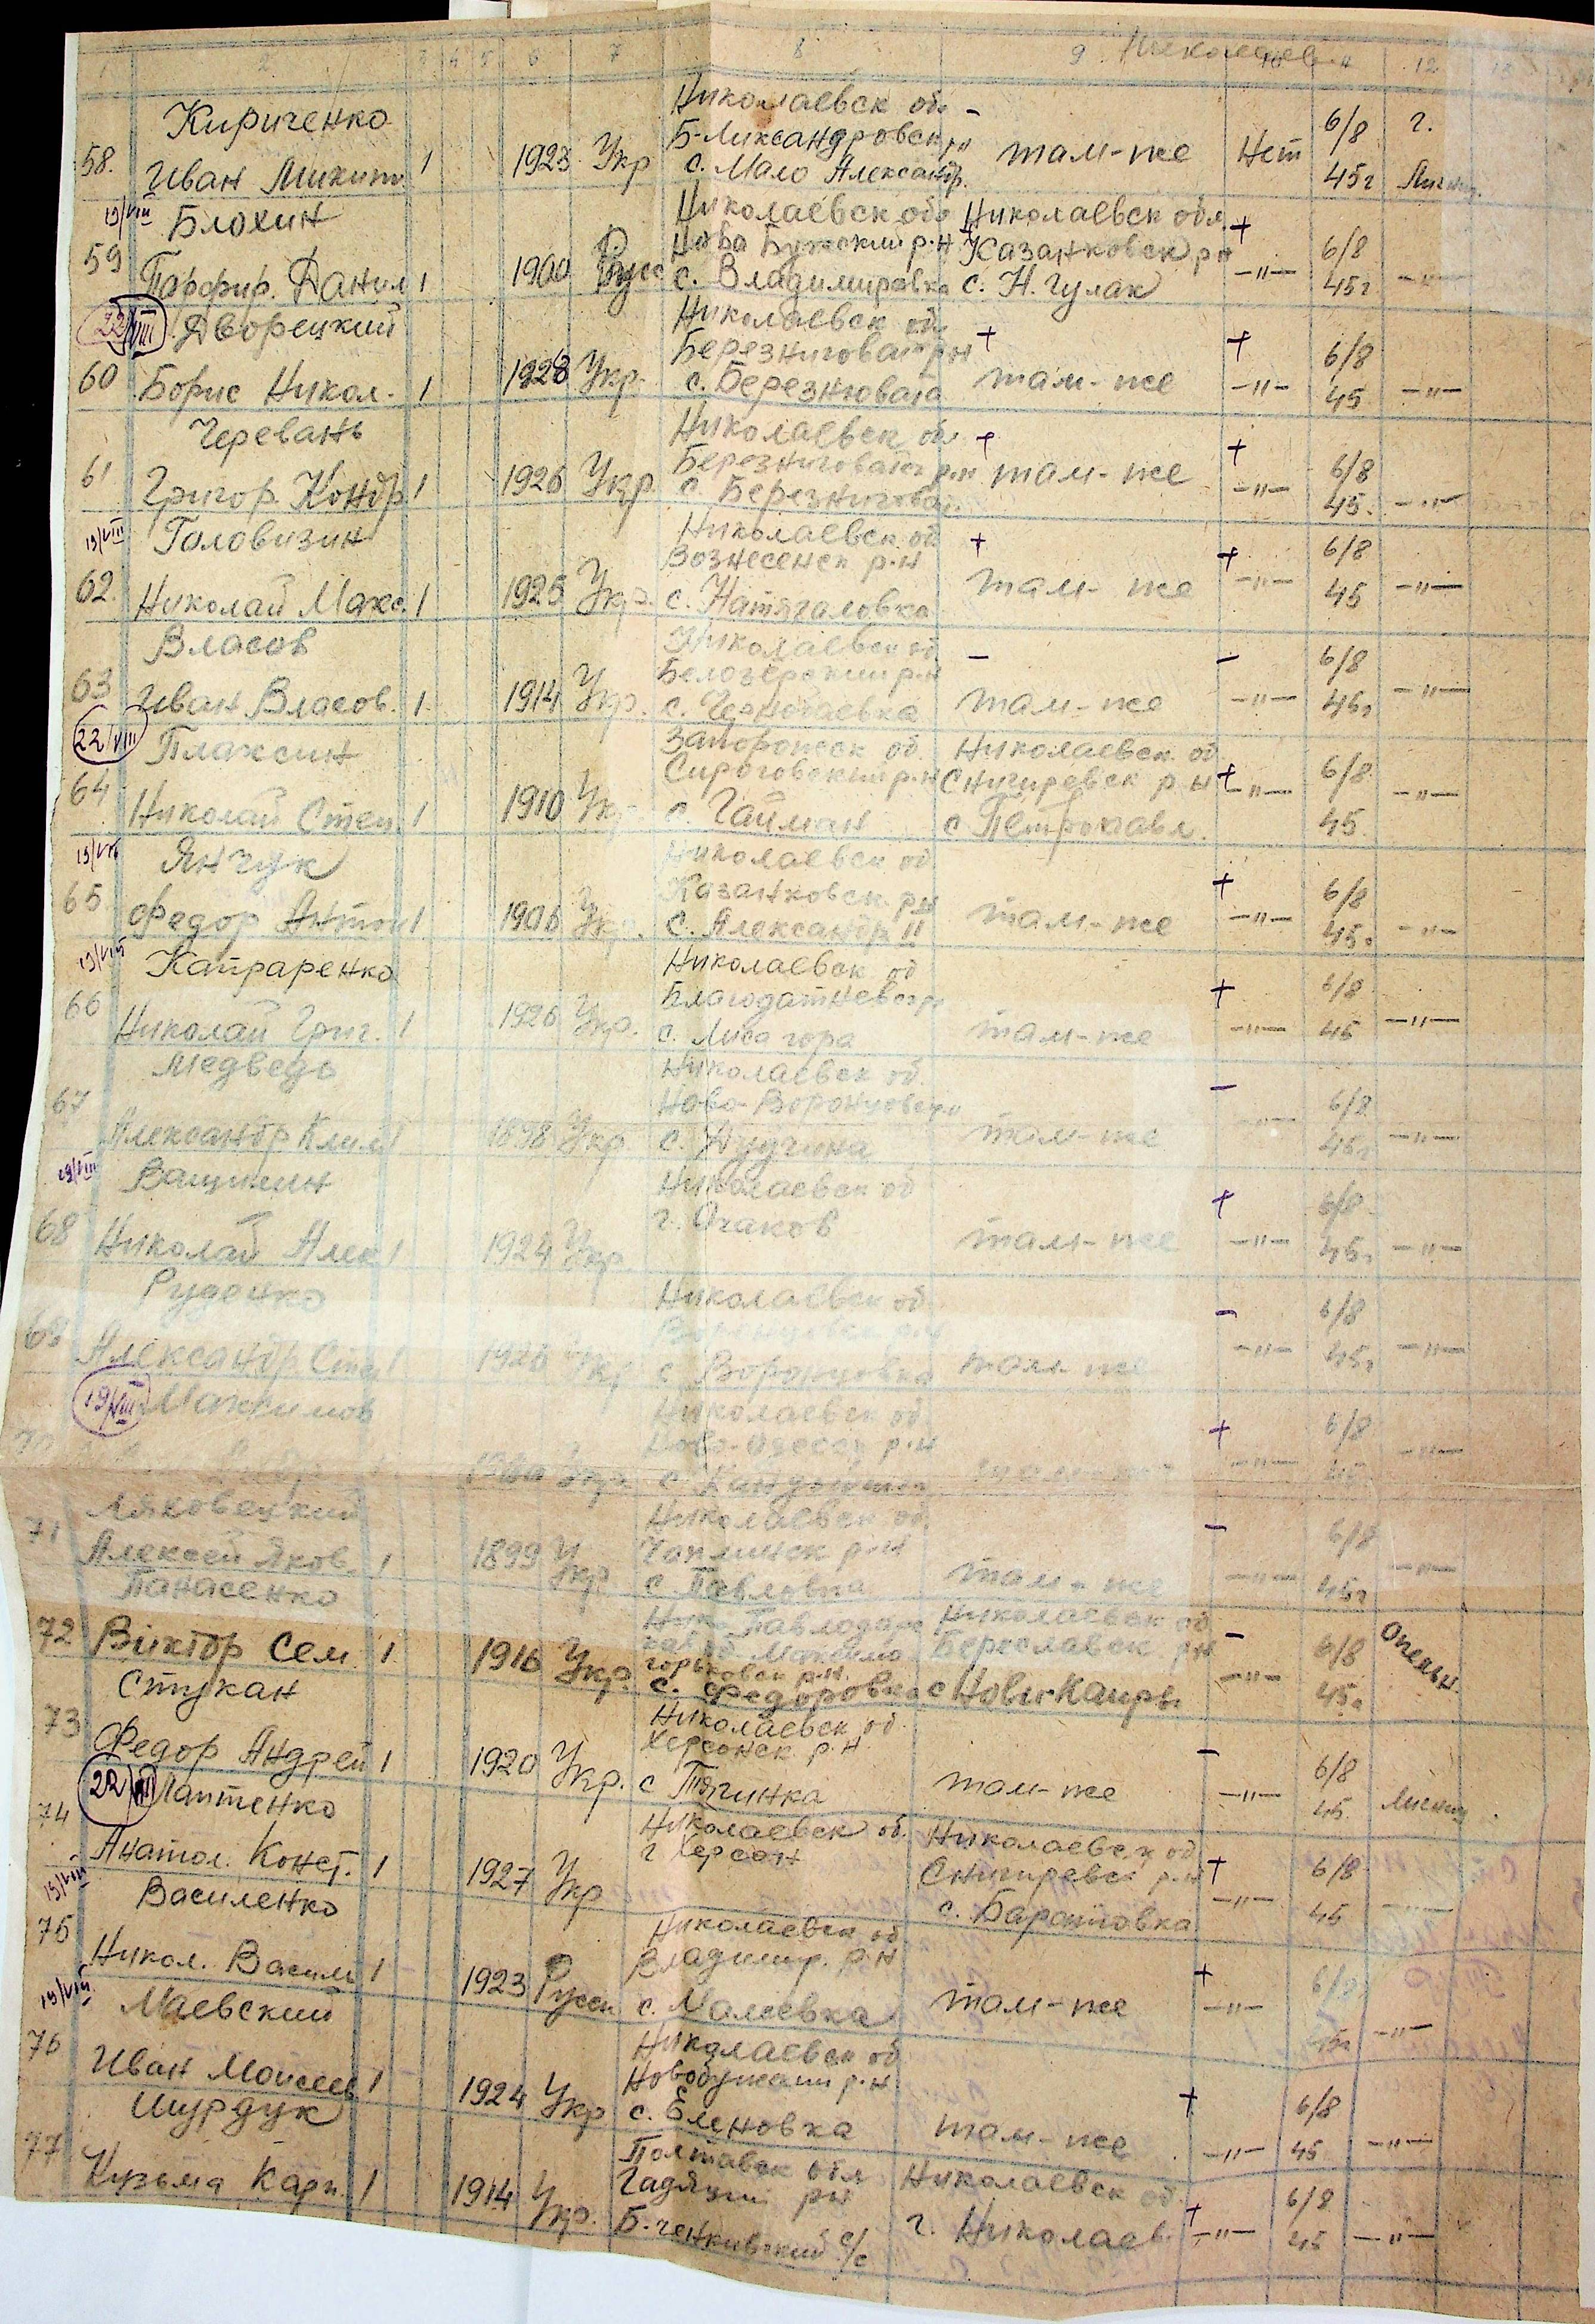 1 2 3 4 5 6 7 8 9 10 11 12 13
Николаев
Кириченко Николаевск об. - 6/8 г.
58. Иван Микит. 1 1923 Укр Б-Ликсандровск рн там-же Нет
с. Мало Александр. 45г
19/VIII Блохин Николаевск обл Николаевск обл. + 6/8
59 Парфир. Данил 1 1900 Русс Нова Бугский р-н Казанковск рн
с. Владимировка с. Н. Гулак -"- 45г -"-
22/VIII Дворецкий Николаевск об. + + 6/8
60 Борис Никол. 1 1928 Укр. Березниговат рн
с. Березниговата там-же -"- 45 -"-
Черевань Николаевск об. + + 6/8
61 Григор. Кондр 1 1926 Укр. Березниговат р.н там-же
с. Березниговат -"- 45. -"-
19/VIII Головизин Николаевск об + + 6/8
62. Николай Макс. 1 1925 Укр. Вознесенск р-н
с. Натягаловка там-же -"- 45 -"-
Власов Николаевск об - - 6/8
63 Иван Власов. 1. 1914 Укр. Белозерский р-н
с. Чернобаевка там-же -"- 45г -"-
22/VIII Плаксин Запорожск об. Николаевск об
64 Николай Степ. 1 1910 Укр Сирогозский р-н Снигиревск р-н + -"- 6/8 -"-
с. Гайман с Петропавл. 45.
19/VIII Янчук Николаевск об. + 6/8
65. Федор Антон 1 1906 Укр. Казанковск. рн
с. Александр II там-же -"- 45. -"-
19/VIII Капраренко Николаевск об + 6/8
66 Николай Григ. 1 1926 Укр. Благодатневск р
с. Лиса гора там-же -"- 45 -"-
Медведь Николаевск об. - 6/8
67 Александр Клим 1 1898 Укр Ново-Воронцовск р
с. Дудчина там-же -"- 45г -"-
19/VIII Ващилин Николаевск об + 6/8
68 Николай Алек 1 1924 Укр г. Очаков там-же -"- 45г -"-
Руденко Николаевск об. - 6/8
69 Александр. Степ 1 1926 Укр Воронцовск р-н
с Воронцовка там-же -"- 45г -"-
19/VIII Максимов Николаевск об. + 6/8
70 1 Укр. Ново-Одесск р-н
с там-же -"- 45 -"-
Ляховецкий Николаевск об. - 6/8
71 Алексей Яков. 1 1899 Укр Чаплинск р-н
с Павловка там-же -"- 45г -"-
Панасенко Павлодарс Николаевск об - 6/8 Опечн.
72 Виктор Сем. 1. 1916 Укр. кая об Максимо Бериславск рн
горьковск р-н.
с. Федоровка с Новы Каиры -"- 45г
Стукан Николаевск об. - 6/8
73 Федор Андрей 1 1920 Укр. Херсонск р-н
с Тягинка там-же -"- 45.
22/VIII Лаптенко Николаевск об. Николаевск об + 6/8
74 Анатол. Конст. 1 1927 Укр г Херсон Снигиревск р-н
с. Баратовка -"- 45 -"-
19/VIII Василенко Николаевск об + 6/8
75 Никол. Василь 1 1923 Русск Владимир. р-н
с. Малеевка там-же -"- 45г -"-
19/VIII Маевский Николаевск об + 6/8
76 Иван Моисеев 1 1924 Укр Новобугский р-н
с. Еленовка там-же -"- 45 -"-
Шурдук Полтавск обл Николаевск об. + 6/8
77 Кузьма Карп. 1 1914 Укр. Гадяцкий рн
Б-ченкивский с/с г. Николаев -"- 45 -"-